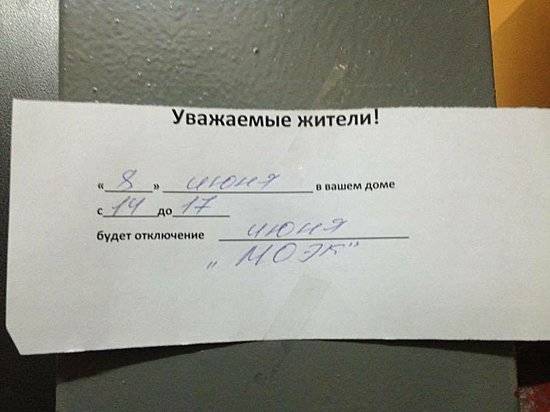 Уважаемые жители!
«8» июня в вашем доме
с 14 до 17
будет отключение июня
„МОЭК“